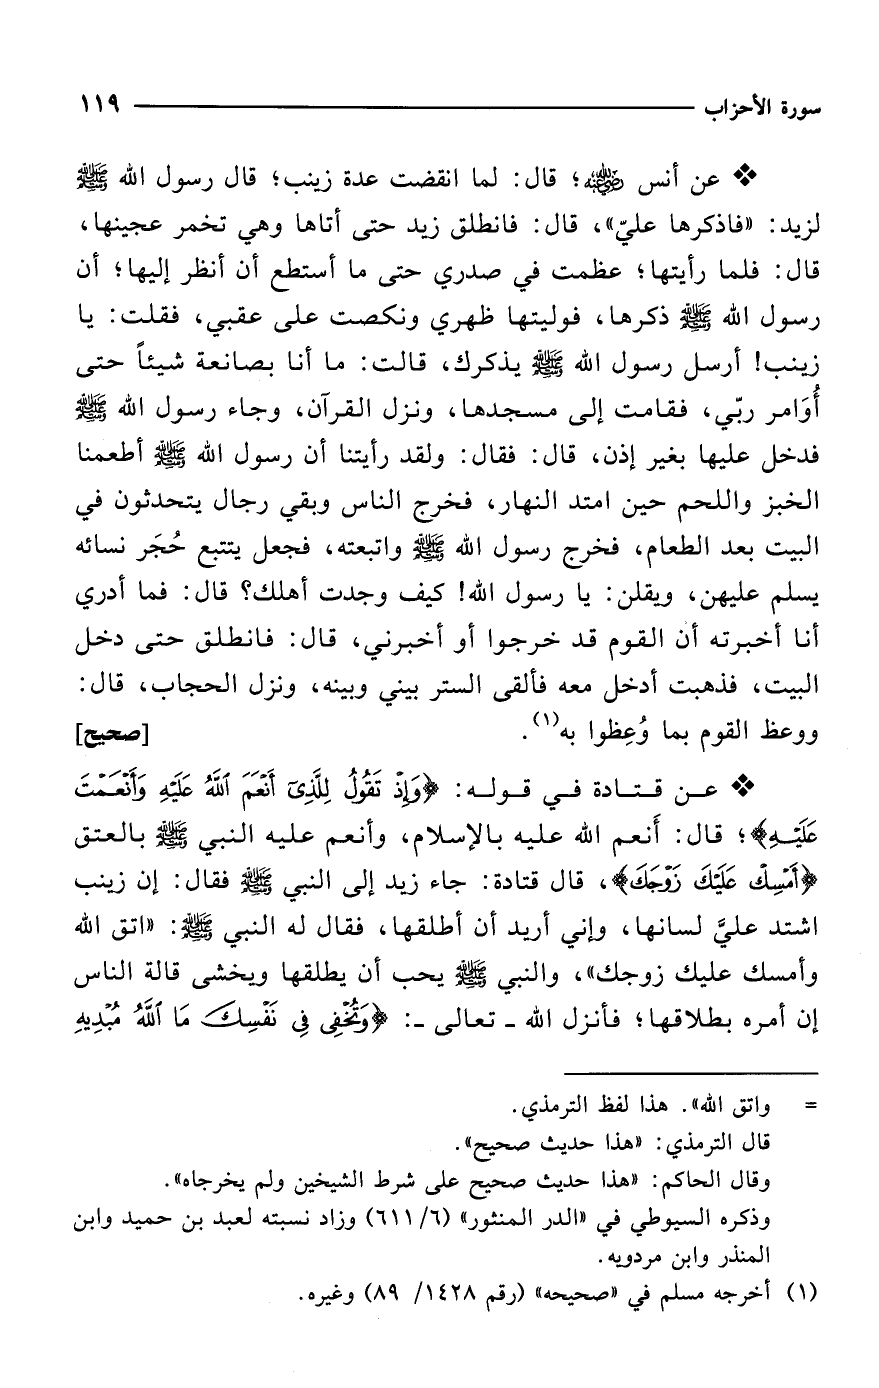 سورة الأحزاب ١١٩
❖ عن أنس ﵁؛ قال: لما انقضت عدة زينب؛ قال رسول الله ﷺ
لزيد: «فاذكرها عليّ»، قال: فانطلق زيد حتى أتاها وهي تخمر عجينها،
قال: فلما رأيتها؛ عظمت في صدري حتى ما أستطع أن أنظر إليها؛ أن
رسول الله ﷺ ذكرها، فوليتها ظهري ونكصت على عقبي، فقلت: يا
زينب! أرسل رسول الله ﷺ يذكرك، قالت: ما أنا بصانعة شيئاً حتى
أُوَامر ربّي، فقامت إلى مسجدها، ونزل القرآن، وجاء رسول الله ﷺ
فدخل عليها بغير إذن، قال: فقال: ولقد رأيتنا أن رسول الله ﷺ أطعمنا
الخبز واللحم حين امتد النهار، فخرج الناس وبقي رجال يتحدثون في
البيت بعد الطعام، فخرج رسول الله ﷺ واتبعته، فجعل يتتبع حُجَر نسائه
يسلم عليهن، ويقلن: يا رسول الله! كيف وجدت أهلك؟ قال: فما أدري
أنا أخبرته أن القوم قد خرجوا أو أخبرني، قال: فانطلق حتى دخل
البيت، فذهبت أدخل معه فألقى الستر بيني وبينه، ونزل الحجاب، قال:
ووعظ القوم بما وُعِظوا به(١). [صحيح]
❖ عن قتادة في قوله: ﴿وَإِذْ تَقُولُ لِلَّذِىٓ أَنْعَمَ ٱللَّهُ عَلَيْهِ وَأَنْعَمْتَ
عَلَيْهِ﴾؛ قال: أَنعم الله عليه بالإسلام، وأنعم عليه النبي ﷺ بالعتق
﴿أَمْسِكْ عَلَيْكَ زَوْجَكَ﴾، قال قتادة: جاء زيد إلى النبي ﷺ فقال: إن زينب
اشتد عليَّ لسانها، وإني أريد أن أطلقها، فقال له النبي ﷺ: «اتق الله
وأمسك عليك زوجك»، والنبي ﷺ يحب أن يطلقها ويخشى قالة الناس
إن أمره بطلاقها؛ فأنزل الله ـ تعالى ـ: ﴿وَتُخْفِى فِى نَفْسِكَ مَا ٱللَّهُ مُبْدِيهِ
= واتق الله». هذا لفظ الترمذي.
قال الترمذي: «هذا حديث صحيح».
وقال الحاكم: «هذا حديث صحيح على شرط الشيخين ولم يخرجاه».
وذكره السيوطي في «الدر المنثور» (٦/ ٦١١) وزاد نسبته لعبد بن حميد وابن
المنذر وابن مردويه.
(١) أخرجه مسلم في «صحيحه» (رقم ١٤٢٨/ ٨٩) وغيره.